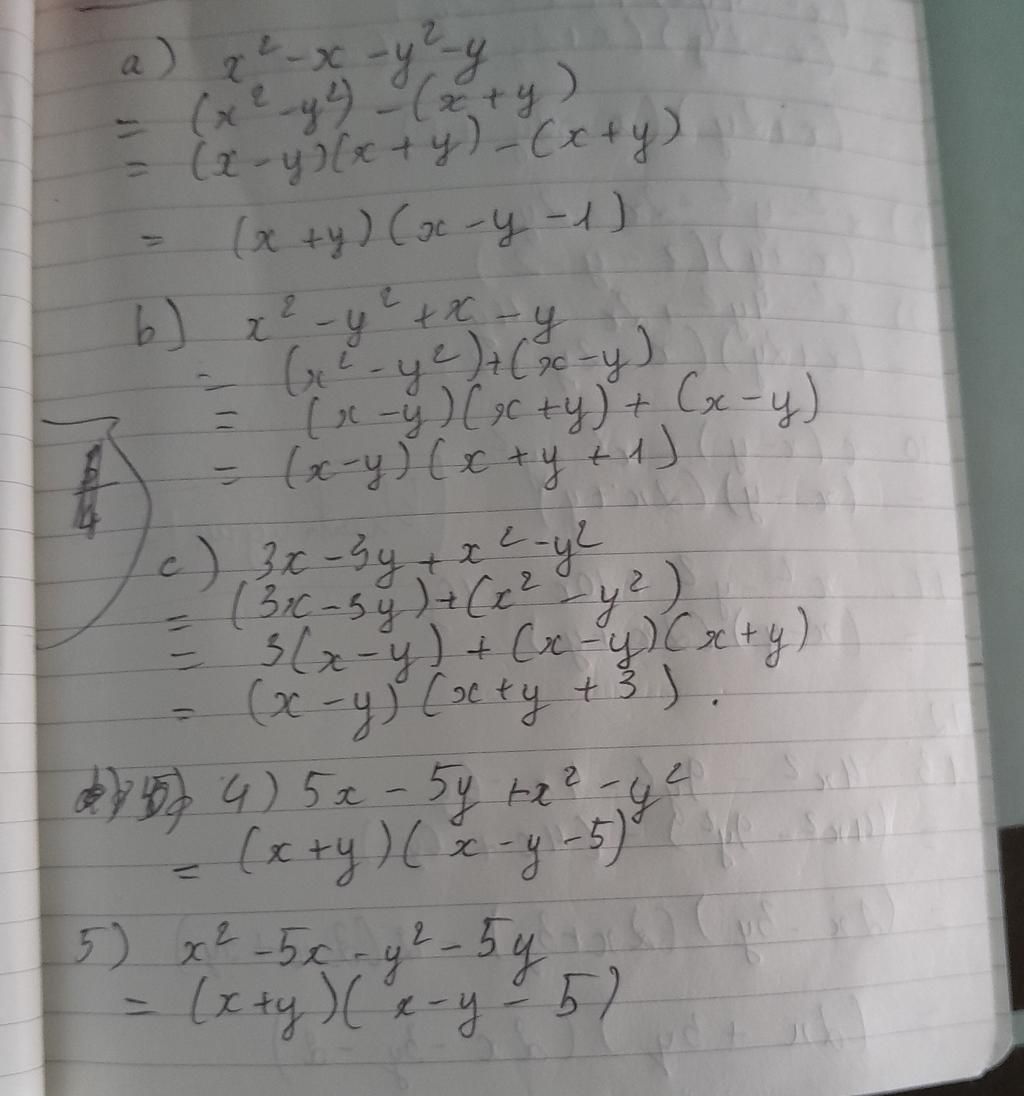 a) x² - x - y² - y
= (x² - y²) - (x + y)
= (x - y)(x + y) - (x + y)
= (x + y)(x - y - 1)
b) x² - y² + x - y
= (x² - y²) + (x - y)
= (x - y)(x + y) + (x - y)
= (x - y)(x + y + 1)
c) 3x - 3y + x² - y²
= (3x - 3y) + (x² - y²)
= 3(x - y) + (x - y)(x + y)
= (x - y)(x + y + 3).
4) 5x - 5y + x² - y²
= (x + y)(x - y - 5)
5) x² - 5x - y² - 5y
= (x + y)(x - y - 5)